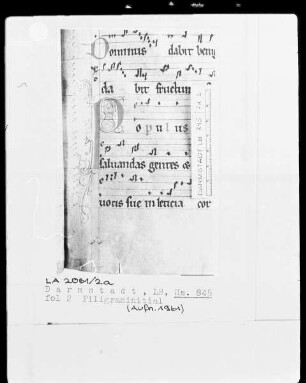 Dominus dabit beni
da bit fructum
Populus
saluandas gentes et
uocis sue in leticia cor
LA 2061/2a
Darmstadt, LB, Hs. 845
fol 2 Filigraninitial
(Aufn. 1961)